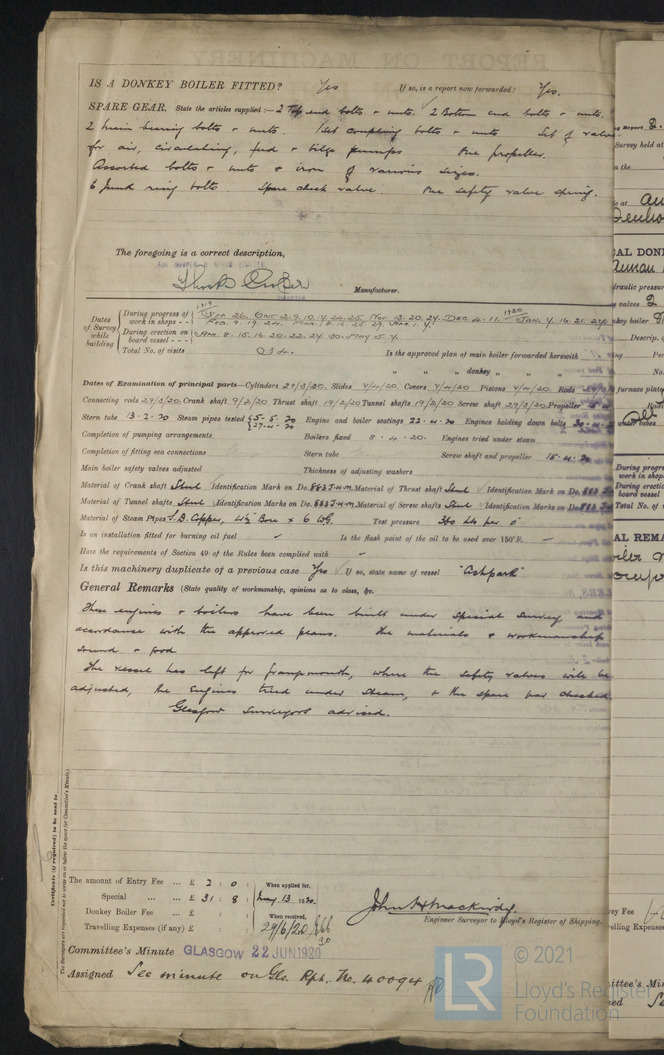 IS A DONKEY BOILER FITTED? Yes If so, is a report now forwarded? Yes.
SPARE GEAR. State the articles supplied:— 2 Top end bolts + nuts. 2 Bottom end bolts + nuts.
2 main bearing bolts + nuts. 1 Set coupling bolts + nuts Set of valves
for air, circulating, feed + bilge pumps One propeller.
Assorted bolts + nuts + iron of various sizes.
6 junk ring bolts. Spare check valve. One safety valve spring.
The foregoing is a correct description,
Manufacturer.
Dates of Survey while building
During progress of work in shops - -
1919 Sep. 26. Oct. 2. 9. 10. 17. 24. 25. Nov. 13. 20. 24. Dec. 4. 11. 1920 Jan. 7. 16. 21. 27.
During erection on board vessel - - -
Apr. 8. 15. 16. 20. 22. 27. 30. May 5. 7.
Total No. of visits 34.
Is the approved plan of main boiler forwarded herewith
" " " donkey " " "
Dates of Examination of principal parts—Cylinders 29/3/20. Slides 7/4/20. Covers 7/4/20. Pistons 7/4/20. Rods 29/3/20
Connecting rods 29/3/20. Crank shaft 9/2/20 Thrust shaft 19/2/20 Tunnel shafts 19/2/20 Screw shaft 29/3/20. Propeller
Stern tube 13-2-20 Steam pipes tested 5-5-20 27-4-20 Engine and boiler seatings 22-4-20 Engines holding down bolts 30-4-20
Completion of pumping arrangements Boilers fixed 8-4-20. Engines tried under steam
Completion of fitting sea connections Stern tube Screw shaft and propeller 15-4-20
Main boiler safety valves adjusted Thickness of adjusting washers
Material of Crank shaft Steel Identification Mark on Do. 883 J.H.M. Material of Thrust shaft Steel Identification Mark on Do. 883
Material of Tunnel shafts Steel Identification Marks on Do. 883 J.H.M. Material of Screw shafts Steel Identification Marks on Do. 883
Material of Steam Pipes S.D. Copper, 4½" Bore × 6 W.G. Test pressure 360 lbs per □"
Is an installation fitted for burning oil fuel ✓ Is the flash point of the oil to be used over 150°F. —
Have the requirements of Section 49 of the Rules been complied with ✓
Is this machinery duplicate of a previous case Yes If so, state name of vessel "Ashpark"
General Remarks (State quality of workmanship, opinions as to class, &c.
These engines + boilers have been built under special survey and
accordance with the approved plans. The materials + workmanship
sound + good
The vessel has left for Grangemouth, where the safety valves will be
adjusted, the Engines tried under steam, + the spare gear checked
Glasgow Surveyors advised.
Certificate (if required) to be sent to
The Surveyors are requested not to write on or below the space for Committee's Minute.
The amount of Entry Fee ... £ 2 : 0 : When applied for,
Special ... £ 31 : 8 : May 13 1920.
Donkey Boiler Fee ... £ : : When received,
Travelling Expenses (if any) £ : : 29/6/20
John H Mackinlay.
Engineer Surveyor to Lloyd's Register of Shipping.
Committee's Minute GLASGOW 22 JUN 1920
Assigned See minute on Gls. Rpt. No. 40094
© 2021
Lloyd's Register
Foundation